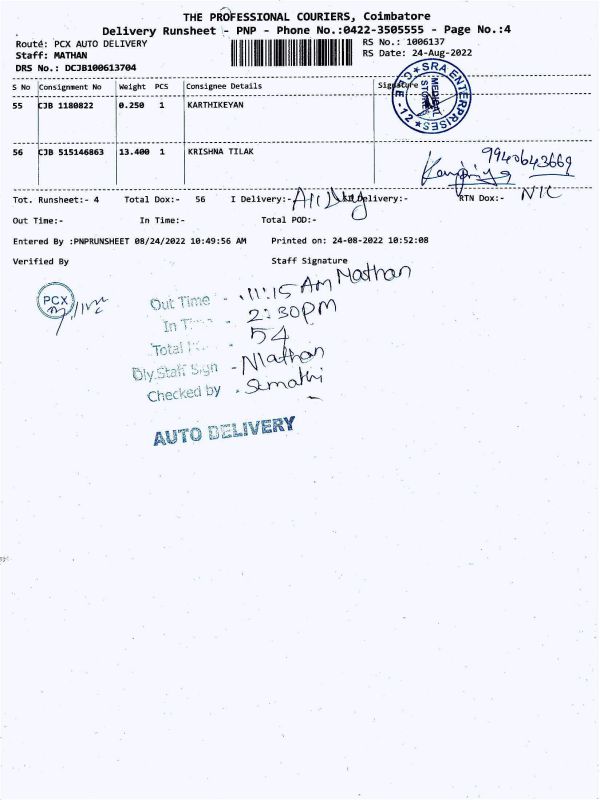 THE PROFESSIONAL COURIERS, Coimbatore
Delivery Runsheet - PNP - Phone No.:0422-3505555 - Page No.:4
Route: PCX AUTO DELIVERY RS No.: 1006137
Staff: MATHAN RS Date: 24-Aug-2022
DRS No.: DCJB100613704
S No Consignment No Weight PCS Consignee Details Signature
SRA ENTERPRISES
MEDICAL STORE
CBE-12
55 CJB 1180822 0.250 1 KARTHIKEYAN
56 CJB 515146863 13.400 1 KRISHNA TILAK
9940643669
Tot. Runsheet:- 4 Total Dox:- 56 I Delivery:- Delivery:- RTN Dox:- NIL
Out Time:- In Time:- Total POD:-
Entered By :PNPRUNSHEET 08/24/2022 10:49:56 AM Printed on: 24-08-2022 10:52:08
Verified By Staff Signature
PCX
Out Time - 11:15 AM Mathan
In T - 2:30PM
Total - 54
Dly.Staff Sign - Mathan
Checked by - Sumathi
AUTO DELIVERY